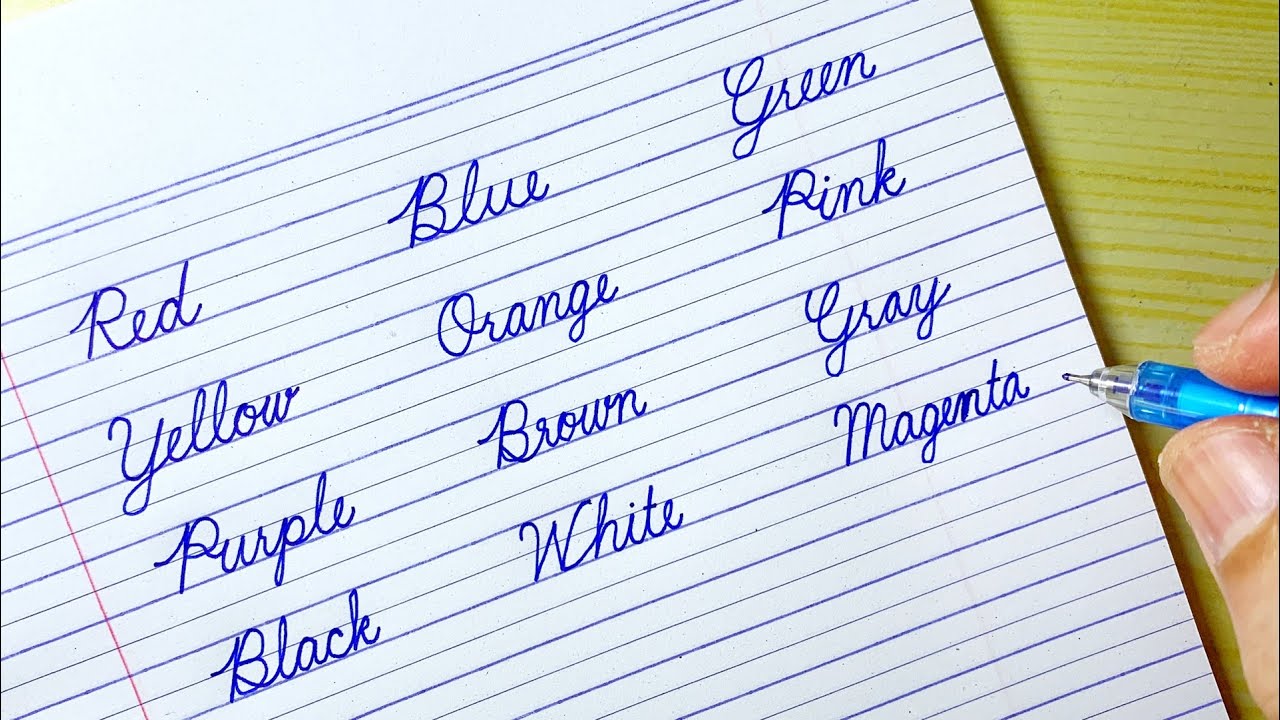 Red Blue Green
Yellow Orange Pink
Purple Brown Gray
Black White Magenta